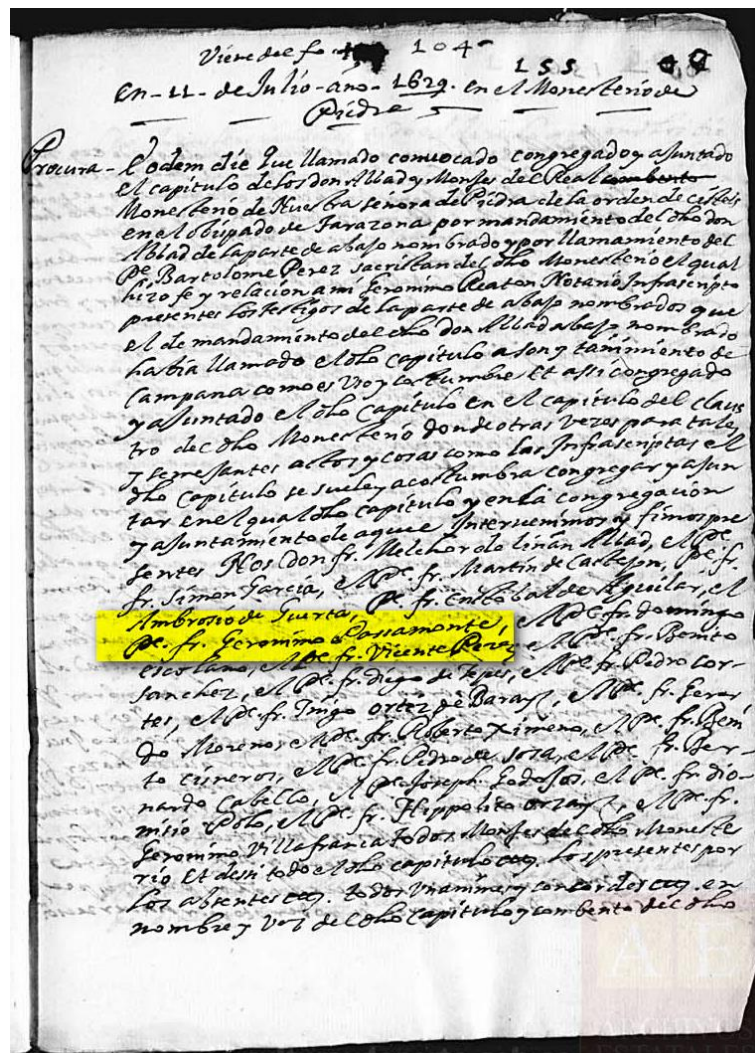 Viene del fo 104
155
En - 11 - de Julio - año - 1629. en el Monesterio de
Piedra
Procura - Eodem die Que llamado convocado congregado y ajuntado
el capitulo de los don Abbad y Monjes del Real combento
Monesterio de Nuestra señora de Piedra de la orden de cistels
en el obispado de Tarazona por mandamiento del dho don
Abbad de la parte de abajo nombrado y por llamamiento del
Pe. Bartolome Perez sacristan del dho Monesterio el qual
hizo fe y relacion a mi Geronimo Reaton Notario Infrascripto
presentes los testigos de la parte de abajo nombrados que
el de mandamiento del dho don Abbad abajo nombrado
habia llamado el dho capitulo a son y tañimiento de
Campana como es uso y costumbre Et assi congregado
y ajuntado el dho capitulo en el capitulo del claus
tro del dho Monesterio donde otras vezes para tales
y semejantes actos y cosas como las Infrascriptas el
dho Capitulo se suele y acostumbra congregar y ajun
tar en el qual dho capitulo y en la congregacion
y ajuntamiento de aquel Intervenimos y fimos pre
sentes Nos Don fr. Melchor de liñan Abbad, el Pe.
fr. Simon Garcia, el Pe. fr. Martin de Castejon, Pe. fr.
Ambrosio de Guerta, Pe. fr. Cristobal de Aguilar, el
Pe. fr. Geronimo Passamonte, el Pe. fr. domingo
escolano, el Pe. fr. Vicente Perez el Pe. fr. Benito
sanchez, el Pe. fr. diego de Yepes, el Pe. fr. Pedro cor
tes, el Pe. fr. Iñigo ortiz de Baray, el Pe. fr. Gerar
do Moreno, el Pe. fr. Roberto Ximeno, el Pe. fr. Beni
to cisneros, el Pe. fr. Pedro de sosa, el Pe. fr. Ber-
nardo Cabello, el Pe. Joseph Godojos, el Pe. fr. dio-
nisio Polo, el Pe. fr. Hippolito orzay, el Pe. fr.
Geronimo Villafranca todos Monjes del dho Moneste
rio Et desi todo el dho capitulo los presentes por
los absentes todos Unanimes y concordes en
nombre y voz del dho Capitulo y combento del dho
A E
ARCHIVOS
ESTATALES